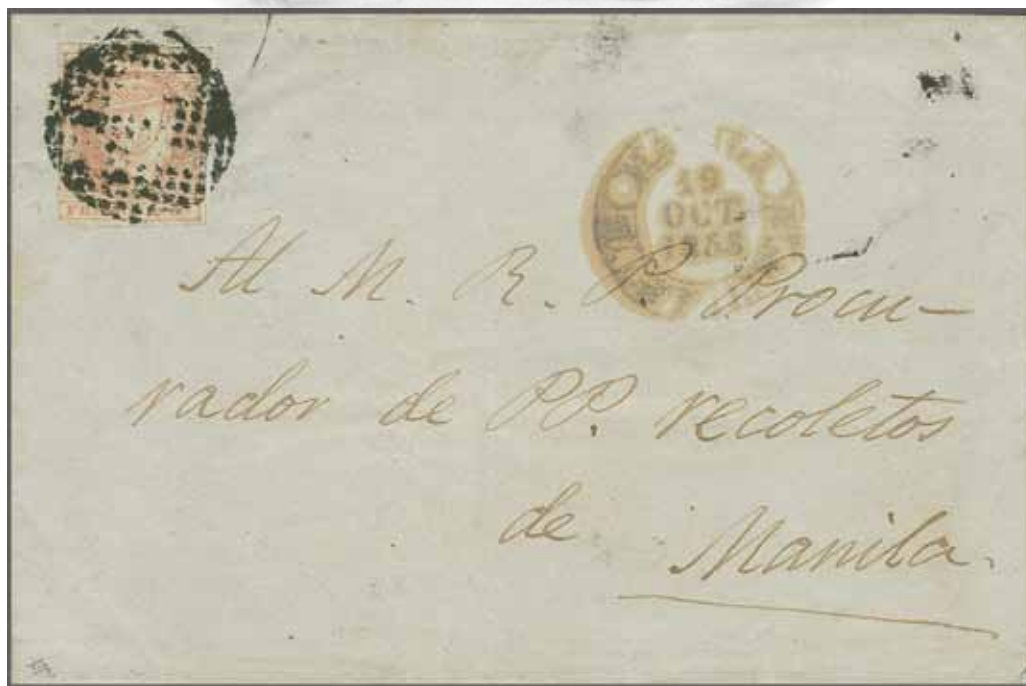 19
OCT.
Al M. R. P. Procu-
rador de PP. recoletos
de
Manila.